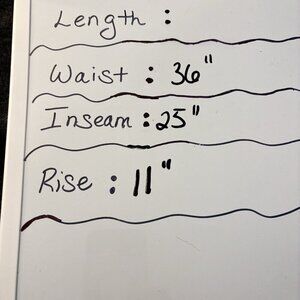 Length :
Waist : 36"
Inseam : 25"
Rise : 11"